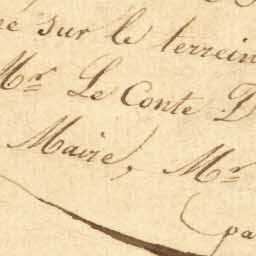 sur le terrein
Mr. Le Conte D
Maire, Mr.
pa